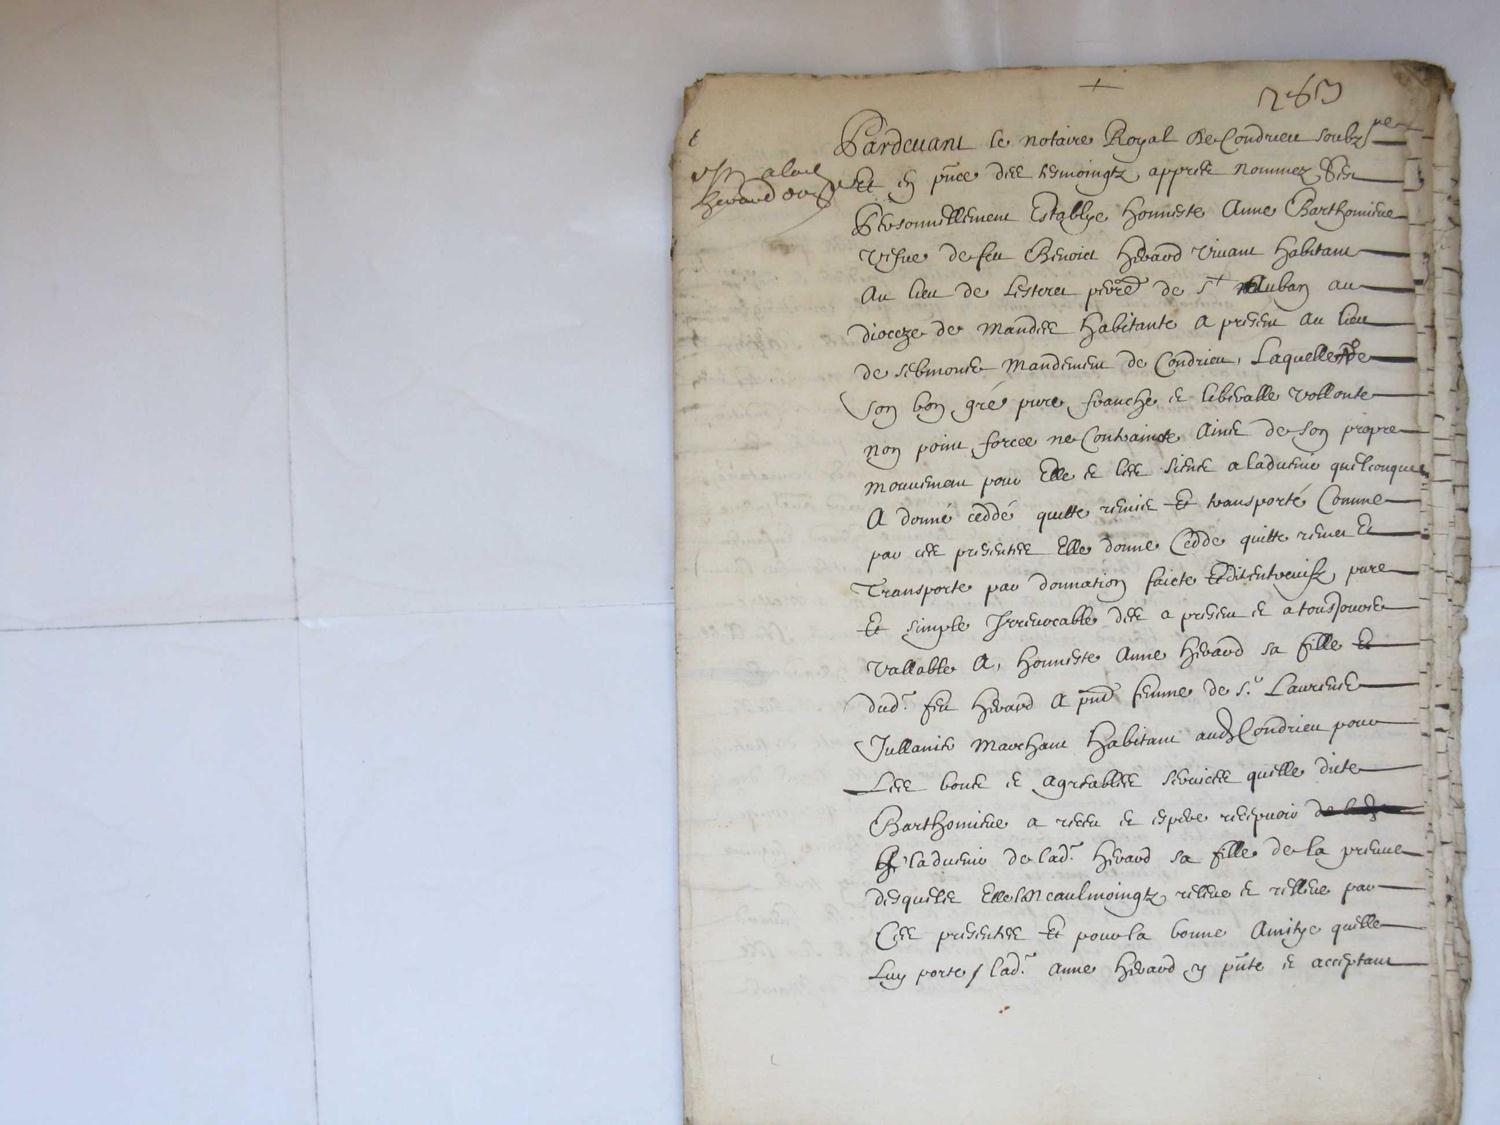 263
Pardevant le notaire Royal de Condrieu soubz
Et en pnce des tesmoingtz apprès nommez
Personnellement Establye honneste Anne Barthomieue
vefue de feu Benoict Herard vivant habitant
Au lieu de de St Auban au
dioceze de Mandes habitante a present au lieu
de Mandement de Condrieu, Laquelle de
son bon gré pure franche et liberalle vollonte
non point forcee ne Contraincte Ains de son propre
Mouvement pour Elle et les siens a ladvenir quelconques
A donné ceddé quitte remis Et transporté Comme
par ces presentes Elle donne Cedde quitte remet Et
Transporte par donnation faicte Entreuifz pure
Et simple Irrevocable des a present et a tousjours
vallable A, honneste Anne Herard sa fille Et
dud. feu Herard A pnt femme de Sr. Laurens
Jullanis Marchant habitant aud Condrieu pour
Les bons et agreables services quelle dicte
Barthomieue a receu et espere recepvoir
ladvenir de lad. Herard sa fille de la preuve
desquels Elle neaulmoingtz relleve et relleve par
Ces presentes Et pour la bonne Amitye quelle
Luy porte / lad. Anne Herard y pnte et acceptant